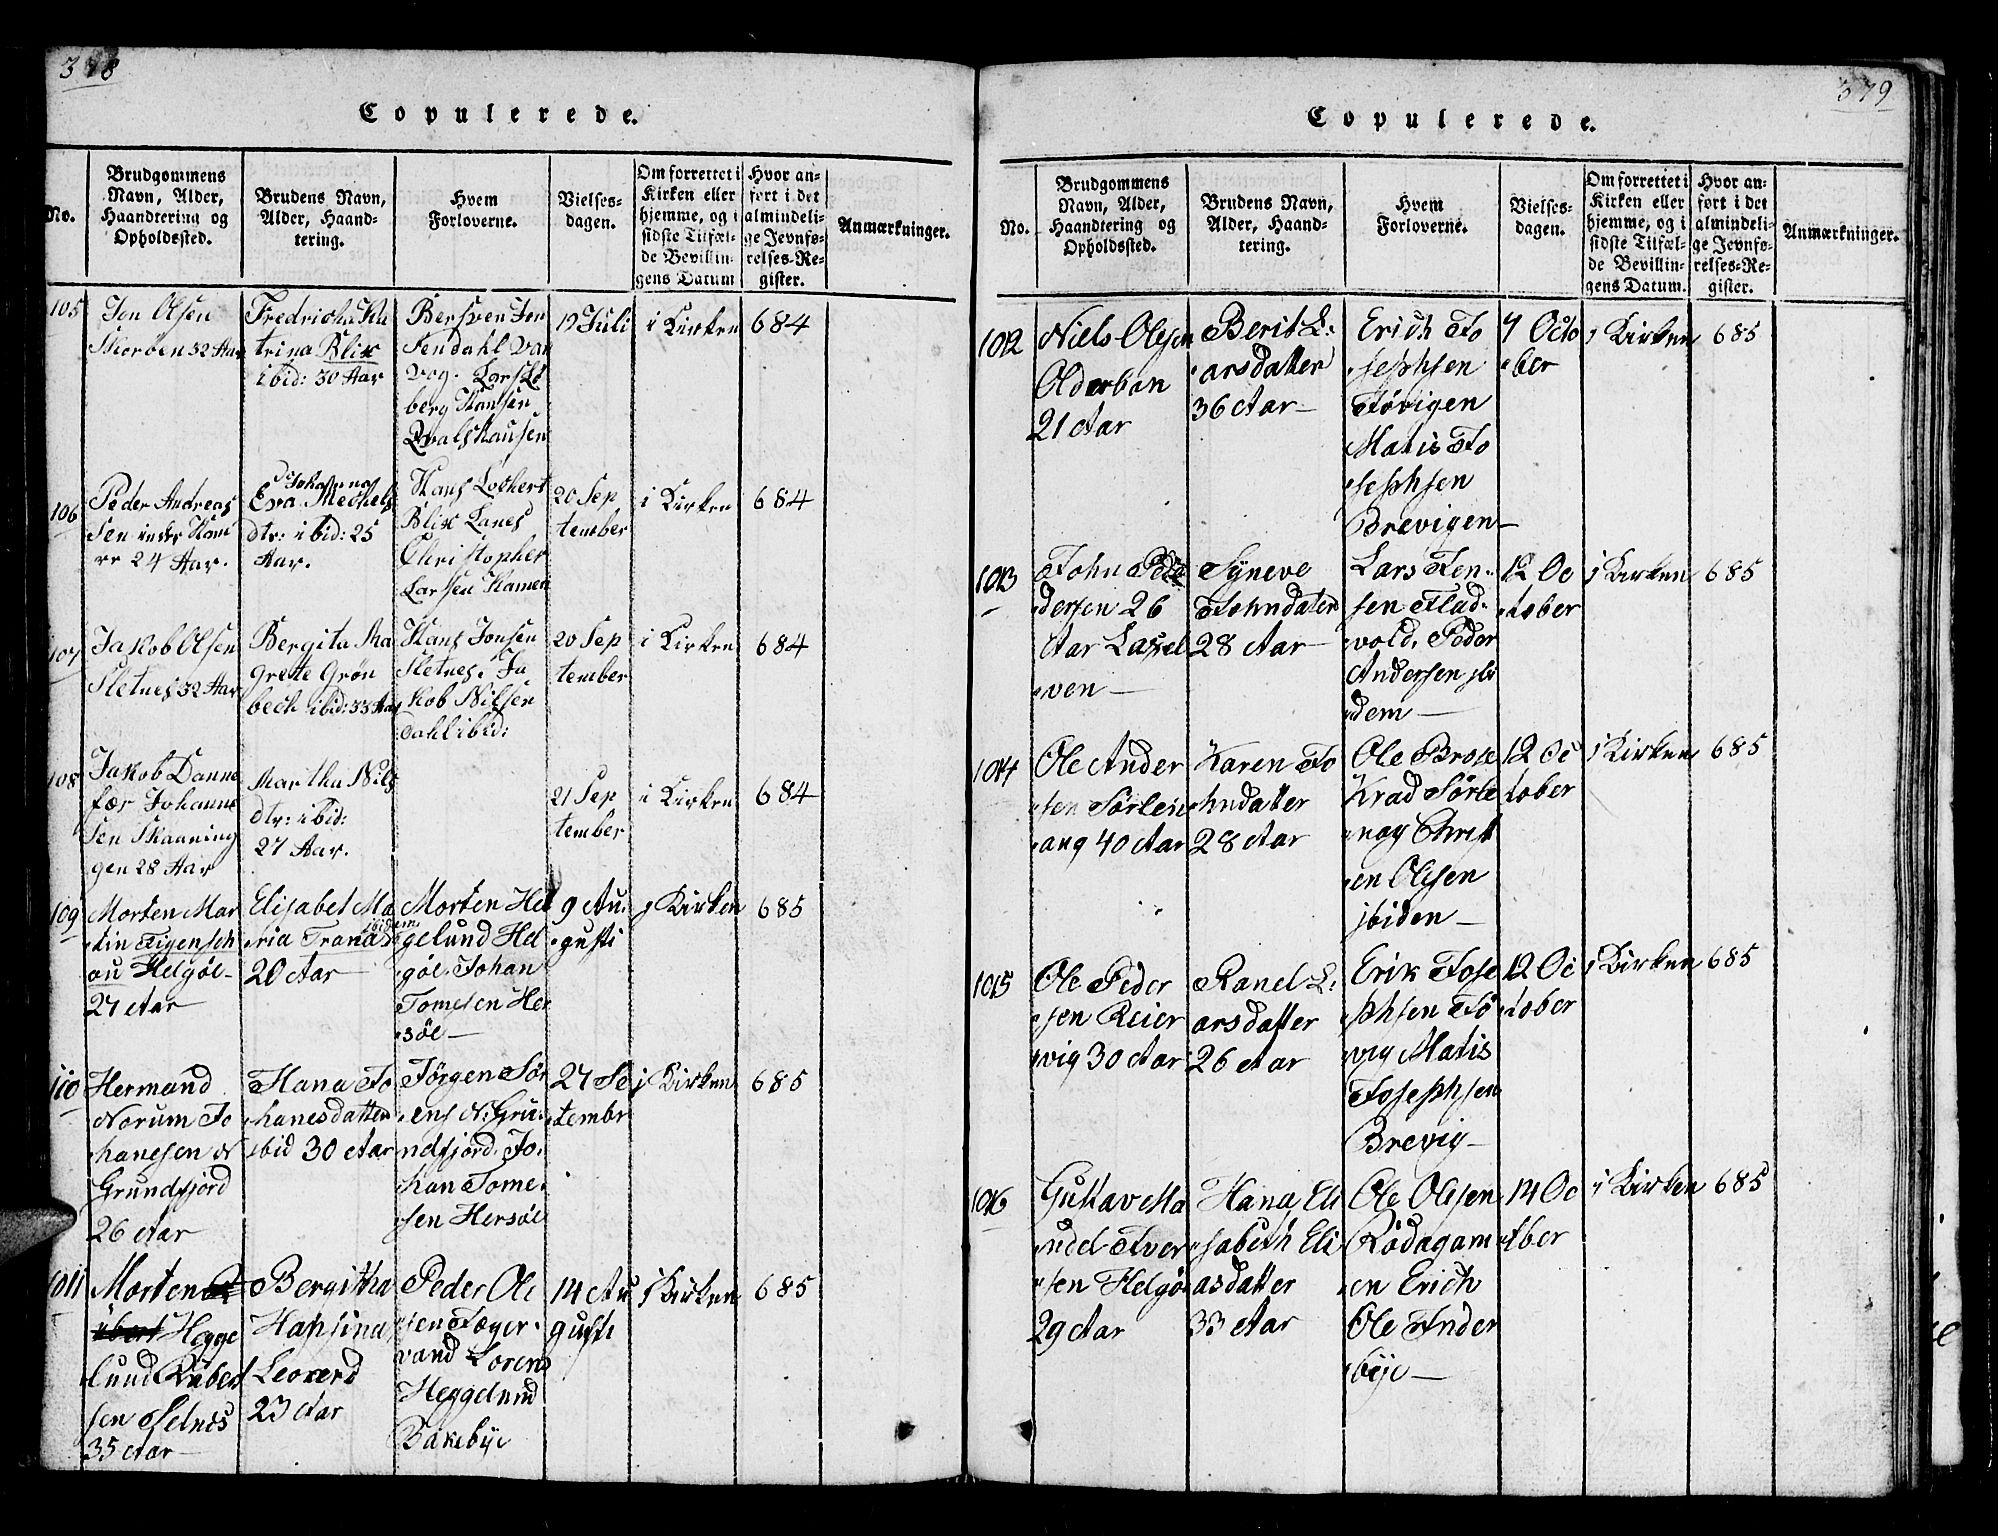 378
Copulerede.
No.
Brudgommens
Navn, Alder,
Haandtering og
Opholdssted.
Brudens Navn,
Alder, Haand-
tering.
Hvem
Forloverne.
Vielses-
dagen.
Om forrettet i
Kirken eller
hjemme, og i
sidste Tilfæl-
de Bevillin-
gens Datum
Hvor an-
ført i det
almindeli-
ge Jevnfø-
relses-Re-
gister.
Anmærkninger.
105
Jon Olsen
32 Aar
Fredricha Ka
trina Blix
ibid: 30 Aar
Bersven Jon
sen dahl Var
Vog. Lars Lo
berg Hansen
Qvalshausen
19 Juli
i Kirken
684
106
Peder Andreas
sen
24 Aar.
Johanna
Eva Mechels
dtr: ibid: 25
Aar.
Hans Lochert
Blix Lanes
Christopher
Larsen Hamen
20 Sep
tember
i Kirken
684
107
Jakob Olsen
Sletnes 32 Aar
Bergita Ma
grete Grøn
bech ibid: 33 Aar
Hans Jonsen
Sletnes. Ja
kob Nilsen
Dahl ibid:
20 Sep
tember
i Kirken
684
108
Jakob Danne
fær Johanne
sen Skaaning
gen 28 Aar
Martha Nils
dtr: ibid:
27 Aar.
21 Sep
tember
i Kirken
684
109
Morten Mar
tin Figensch
ou Helgøe
27 Aar
Elisabet Ma
ibidem
ria Trana
20 Aar
Morten Heg
gelund Hel
gøe. Johan
Tomesen Her
søe
9 Au
gusti
i Kirken
685
110
Hermand
Norum Jo
hanesen N
Grundfjord
26 Aar
Hana Jo
hanesdatter
ibid 30 Aar
Jørgen Sør
ens N: Gru
ndfjord. Jo
han Tome
sen Hersøe
27 Se
tembr
i Kirken
685
1011
Morten
Hegge
lund Kuber
sen Selnes
35 Aar
Bergitha
Hapsina
Leonerd
23 Aar
Peder Ole
sen Fager
vand Lorens
Heggelund
Bakebye
14 Au
gusti
i Kirken
685
379
Copulerede.
No.
Brudgommens
Navn, Alder,
Haandtering og
Opholdssted.
Brudens Navn,
Alder, Haand-
tering.
Hvem
Forloverne.
Vielses-
dagen.
Om forrettet i
Kirken eller
hjemme, og i
sidste Tilfæl-
de Bevillin-
gens Datum.
Hvor an-
ført i det
almindeli-
ge Jevnfø-
relses-Re-
gister.
Anmærkninger.
1012
Niels Olesen
Olderban
21 Aar
Berit L:
arsdatter
36 Aar
Erich Jo
sephsen
Tøvigen
Matis Jo
sephsen
Brevigen
7 Octo
ber
i Kirken
685
1013
John Pe
dersen 26
Aar Laxel
ven
Syneve
Johndater
28 Aar
Lars Jen
sen Flad
vold. Peder
Andersen ibi
dem
12 Oc
tober
i Kirken
685
1014
Ole Ander
sen Sørlen
ang 40 Aar
Karen Jo
hndatter
28 Aar
Ole Brose
Krad Sørle
nag Christ
en Olesen
ibiden
12 Oc
tober
i Kirken
685
1015
Ole Peder
sen Reier
vig 30 Aar
Ranel L:
arsdatter
26 Aar
Erik Jose
phsen Tø
vig Matis
Josephsen
Brevig
12 Oc
tober
i Kirken
685
1016
Gustav Ma
udel Iver
sen Helgø
29 Aar
Hana Eli
sabeth Eli
asdatter
33 Aar
Ole Olesen
Rødagam
en Erich
Ole Inder
bye
14 Oc
tber
i Kirken
685